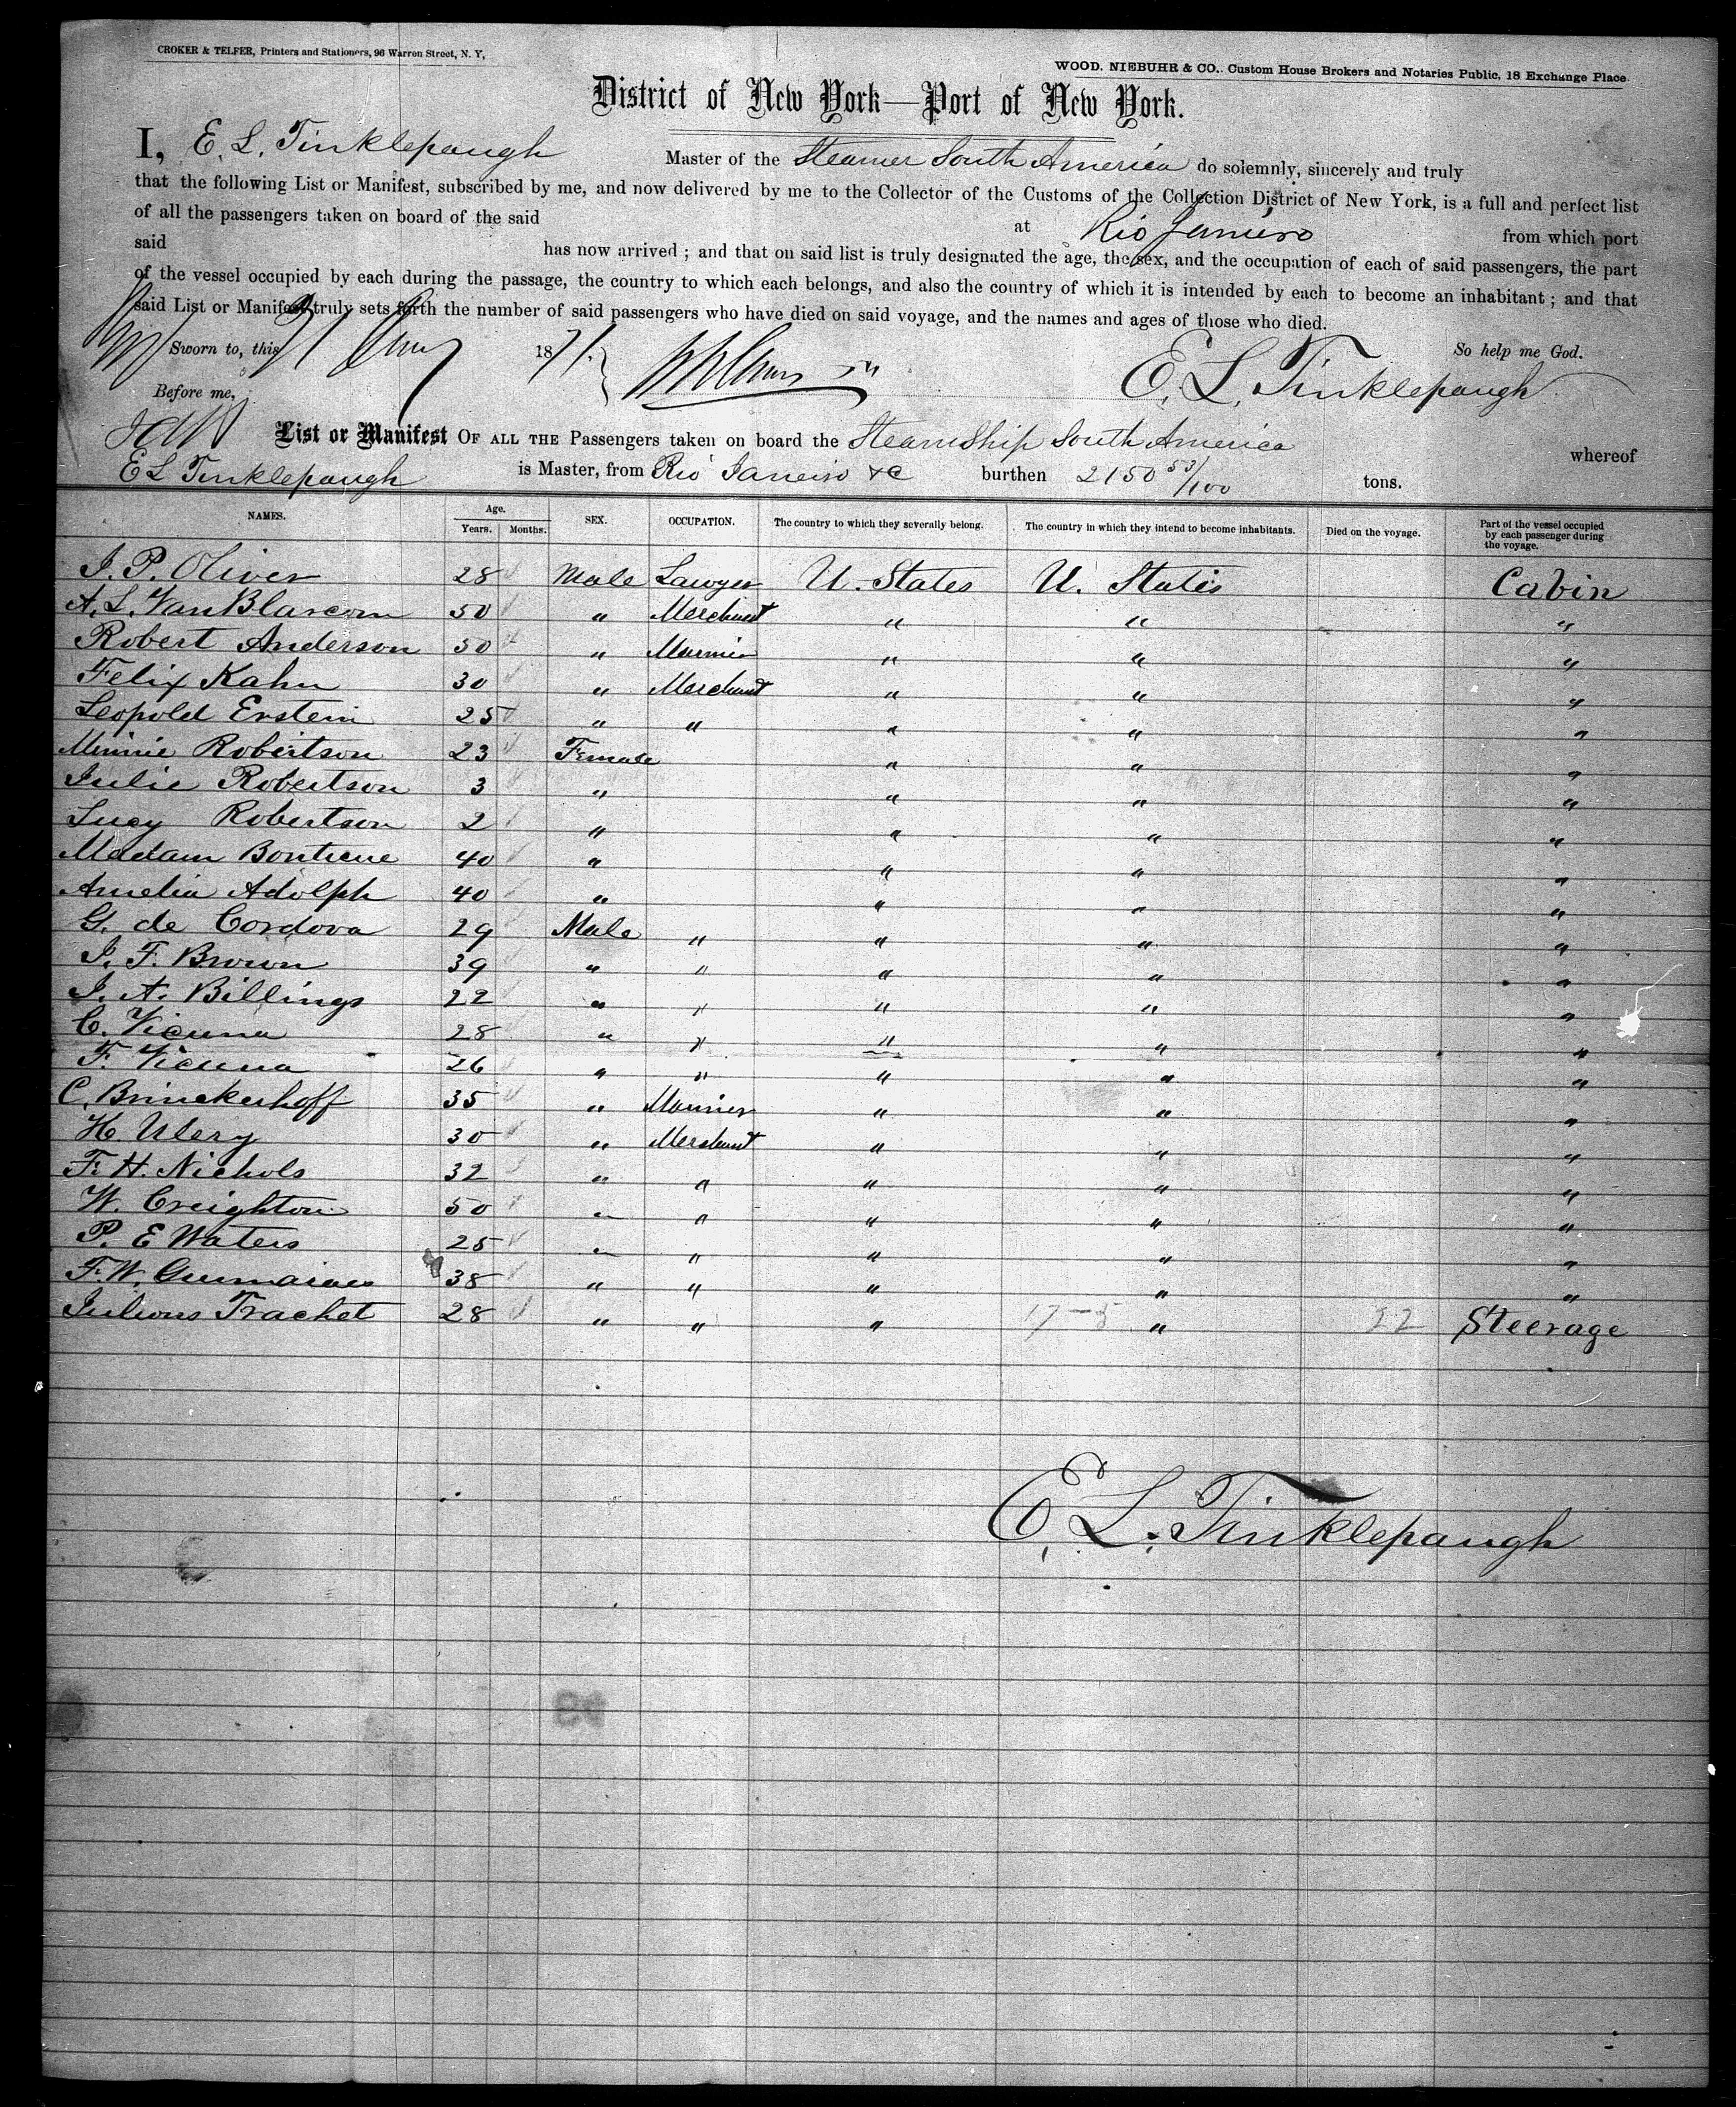 CROKER & TELFER, Printers and Stationers, 96 Warren Street, N. Y,
WOOD, NIEBUHR & CO., Custom House Brokers and Notaries Public, 18 Exchange Place.
District of New York—Port of New York.
I, E. L. Tinklepaugh Master of the Steamer South America do solemnly, sincerely and truly
that the following List or Manifest, subscribed by me, and now delivered by me to the Collector of the Customs of the Collection District of New York, is a full and perfect list
of all the passengers taken on board of the said at Rio Janeiro from which port
said has now arrived ; and that on said list is truly designated the age, the sex, and the occupation of each of said passengers, the part
of the vessel occupied by each during the passage, the country to which each belongs, and also the country of which it is intended by each to become an inhabitant ; and that
said List or Manifest truly sets forth the number of said passengers who have died on said voyage, and the names and ages of those who died.
Sworn to, this 1871. So help me God.
Before me, E. L. Tinklepaugh
List or Manifest OF ALL THE Passengers taken on board the Steamship South America whereof
E L Tinklepaugh is Master, from Rio Janeiro &c burthen 2150 53/100 tons.
NAMES. Age. Years. Months. SEX. OCCUPATION. The country to which they severally belong. The country in which they intend to become inhabitants. Died on the voyage. Part of the vessel occupied by each passenger during the voyage.
J. P. Oliver 28 Male Lawyer U. States U. States Cabin
A. L. Van Blarcom 50 " Merchant " " "
Robert Anderson 50 " Marinier " " "
Felix Kahn 30 " Merchant " " "
Leopold Erstein 25 " " " " "
Minnie Robertson 23 Female " " "
Julie Robertson 3 " " " "
Lucy Robertson 2 " " " "
Madam Bontieue 40 " " " "
Amelia Adolph 40 " " " "
G. de Cordova 29 Male " " " "
J. F. Brown 39 " " " " "
J. A. Billings 22 " " " " "
C. Vicuna 28 " " " " "
F. Vicuna 26 " " " " "
C. Brinckerhoff 35 " Marinier " " "
H. Ulery 30 " Merchant " " "
F. H. Nichols 32 " " " " "
W. Creighton 50 " " " " "
P. E Waters 25 " " " " "
F. W. Guimaraes 38 " " " " "
Julious Trachet 28 " " " 17-5 " 22 Steerage
E. L. Tinklepaugh